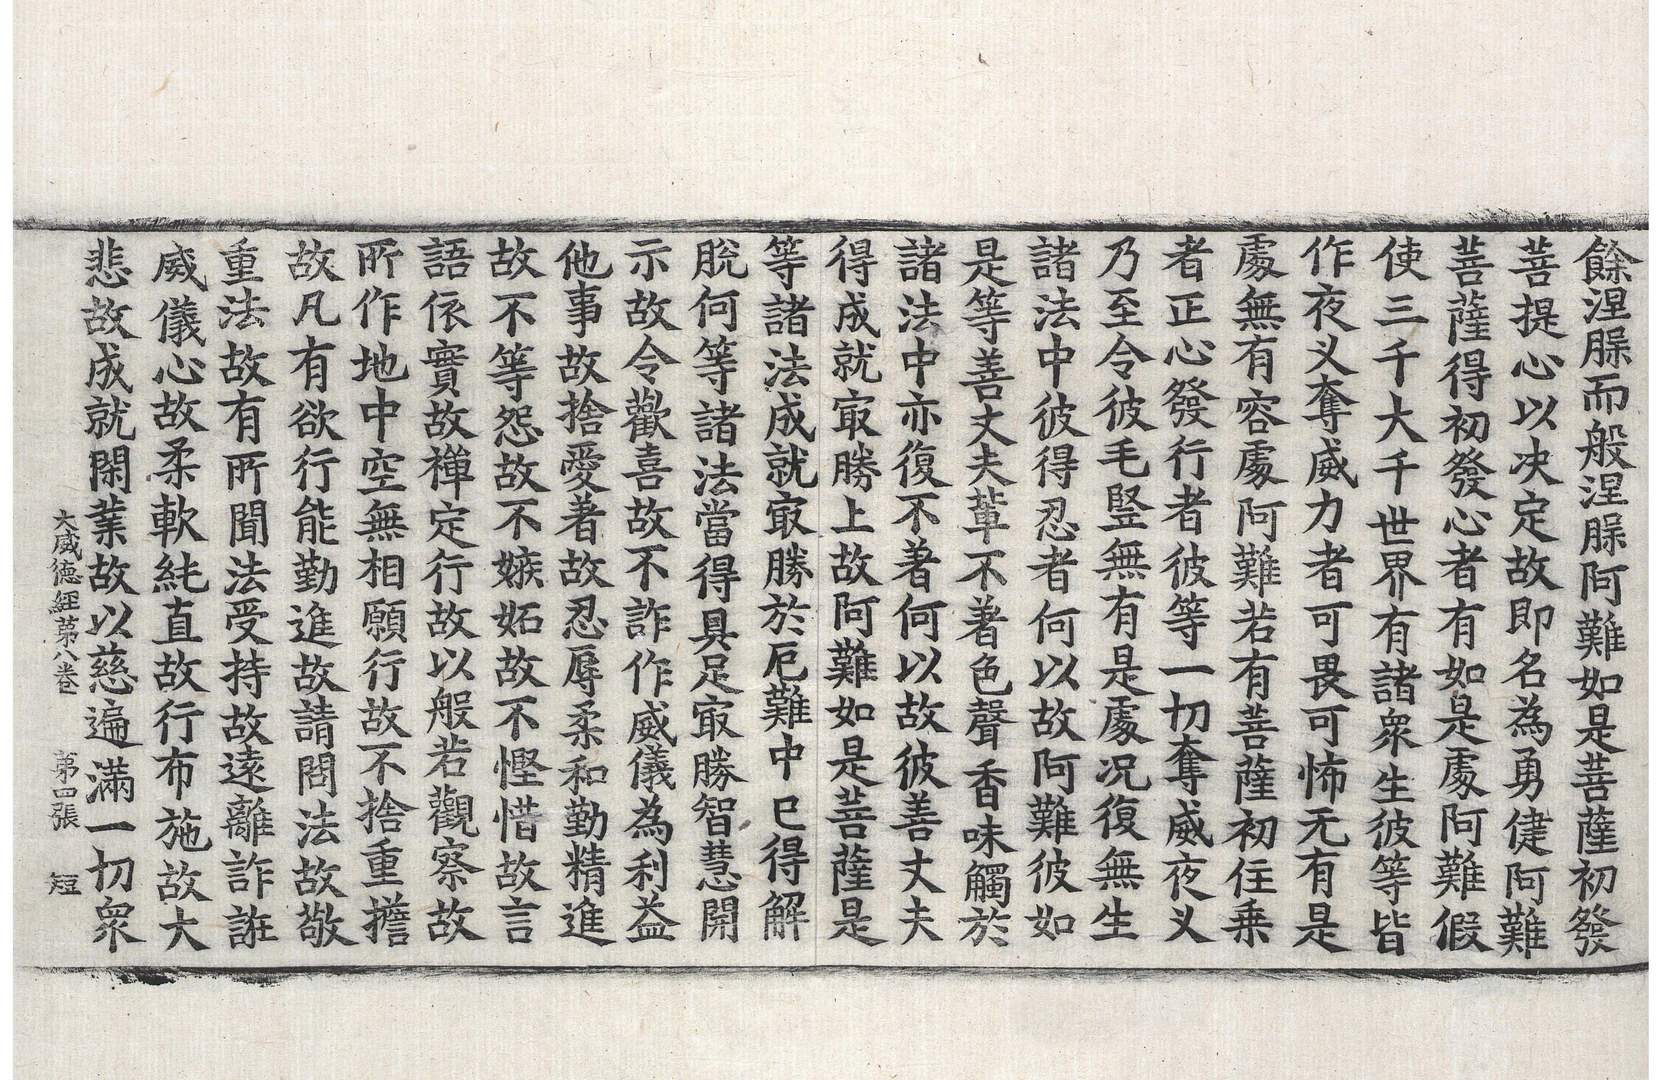 餘涅腂而般涅腂阿難如是菩薩初發
菩提心以决定故即名為勇健阿難
菩薩得初發心者有如是處阿難假
使三千大千世界有諸衆生彼等皆
作夜叉奪威力者可畏可怖无有是
處無有容處阿難若有菩薩初住乗
者正心發行者彼等一切奪威夜叉
乃至令彼毛竪無有是處况復無生
諸法中彼得忍者何以故阿難彼如
是等善丈夫輩不著色聲香味觸於
諸法中亦復不著何以故彼善丈夫
得成就冣勝上故阿難如是菩薩是
等諸法成就冣勝於厄難中已得解
脫何等諸法當得具足冣勝智慧開
示故令歡喜故不詐作威儀為利益
他事故捨愛著故忍辱柔和勤精進
故不等怨故不嫉妬故不慳惜故言
語依實故禪定行故以般若觀察故
所作地中空無相願行故不捨重擔
故凡有欲行能勤進故請問法故敬
重法故有所聞法受持故遠離詐誑
威儀心故柔軟純直故行布施故大
悲故成就閑業故以慈遍滿一切衆
大威德經第八卷 第四張 短